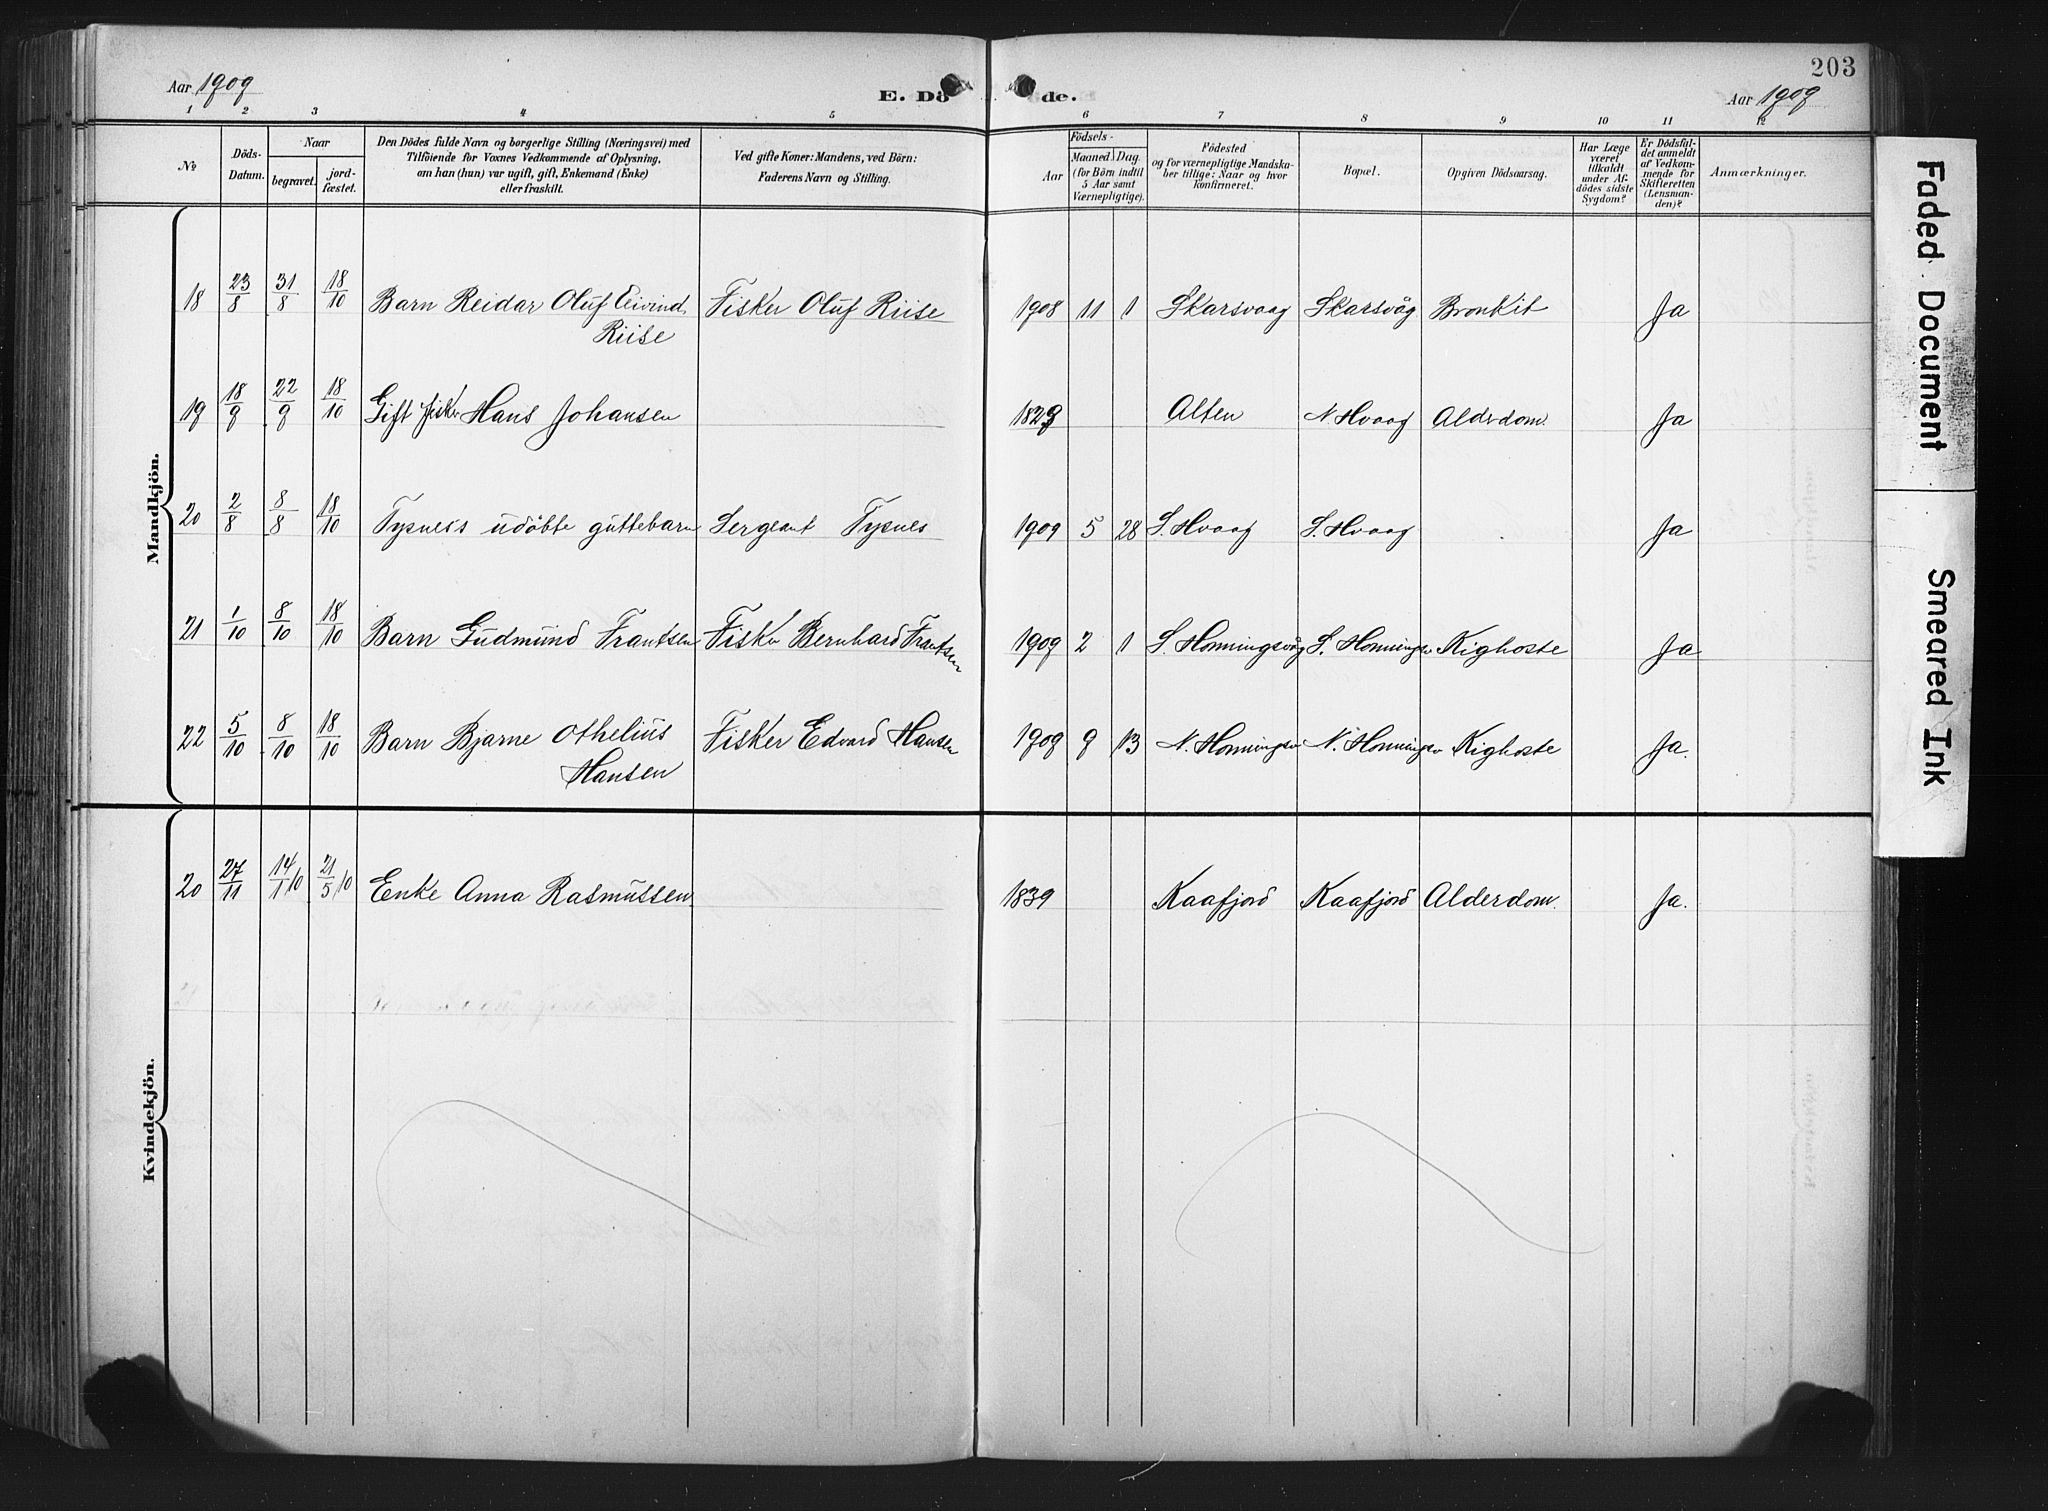 203
Aar 1909
E. Dö de.
Aar 1909
1 2 3 4 5 6 7 8 9 10 11 12
No
Döds-Datum.
Naar
begravet.
jord-fæstet.
Den Dödes fulde Navn og borgerlige Stilling (Næringsvei) med
Tilföiende for Voxnes Vedkommende af Oplysning,
om han (hun) var ugift, gift, Enkemand (Enke)
eller fraskilt.
Ved gifte Koner: Mandens, ved Börn:
Faderens Navn og Stilling.
Födsels-
Aar
Maaned. Dag.
(for Börn indtil
5 Aar samt
Værnepligtige).
Födested
og for værnepligtige Mandska-
ber tillige: Naar og hvor
konfirmeret.
Bopæl.
Opgiven Dödsaarsag.
Har Læge
været
tilkaldt
under Af-
dödes sidste
Sygdom?
Er Dödsful-
det anmeldt
af Vedkom-
mende for
Skifteretten
(Lensman-
den)?
Anmærkninger.
Mandkjön.
18 23/8 31/8 18/10 Barn Reidar Oluf Eivind Fisker Oluf Riise 1908 11 1 Skarsvaag Skarsvåg Bronkit Ja
Riise
19 18/9 22/9 18/10 Gift fisker Hans Johansen 1829 Alten N. Hvaag Alderdom. Ja
20 2/8 8/8 18/10 Tysnes's udöbte guttebarn Sergeant Tysnes 1909 5 28 S. Hvaag S. Hvaag Ja
21 1/10 8/10 18/10 Barn Gudmund Frantsen Fisker Bernhard Frantsen 1909 2 1 S. Honningsvåg S. Honningsv Kighoste Ja
22 5/10 8/10 18/10 Barn Bjarne Othelius Fisker Edvard Hansen 1909 9 13 N. Honningsv N. Honningsv Kighoste Ja.
Hansen
Kvindekjön.
20 27/11 14/1 10 21/5 10 Enke Anna Rasmussen 1839 Kaafjord Kaafjord Alderdom. Ja.
Faded Document
Smeared Ink